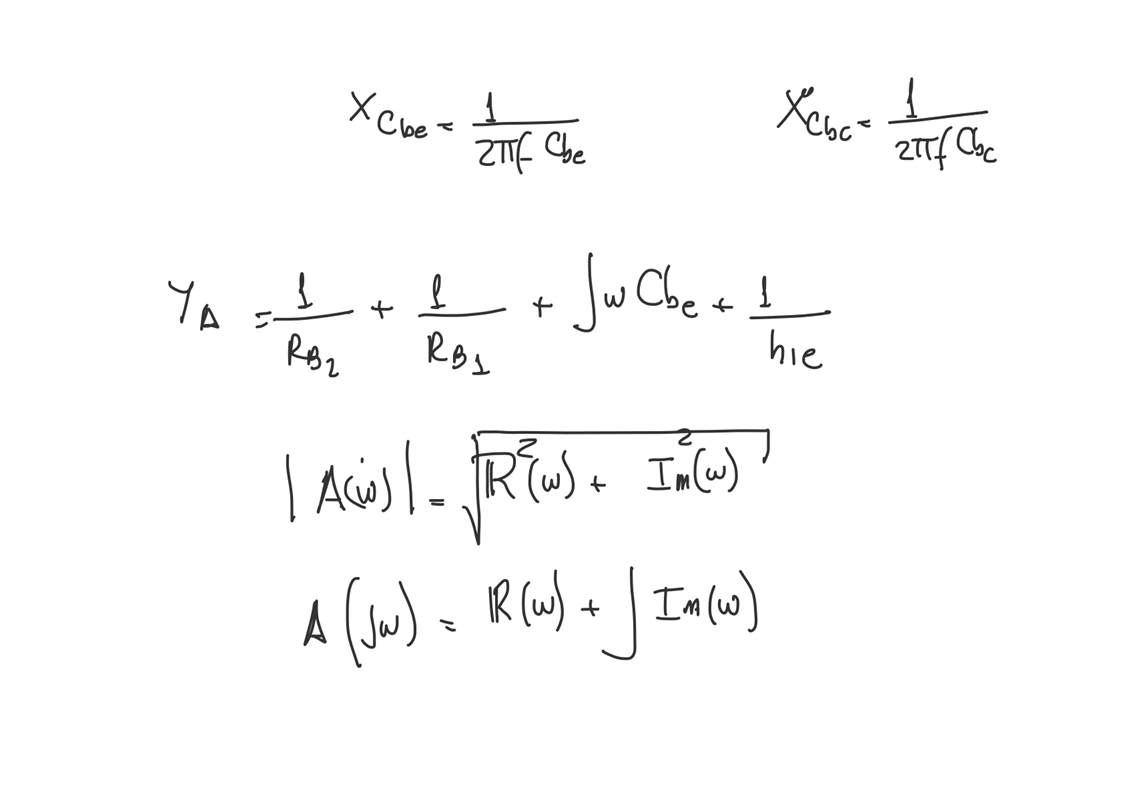 X_Cbe = 1/(2πf Cbe) X_Cbc = 1/(2πf Cbc)
Y_A = 1/R_B2 + 1/R_B1 + jω Cbe + 1/hie
|A(ω)| = √(ℝ²(ω) + Im²(ω))
A(jω) = ℝ(ω) + j Im(ω)